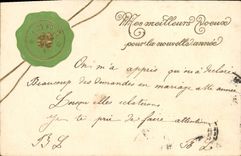 Mes meilleurs Voeux
pour la nouvelle année
On m'a appris qu'on a déclaré
Beaucoup des demandes en mariage cette année
Lorsqu'elles éclateront
Je te prie de faire attention
B L B L